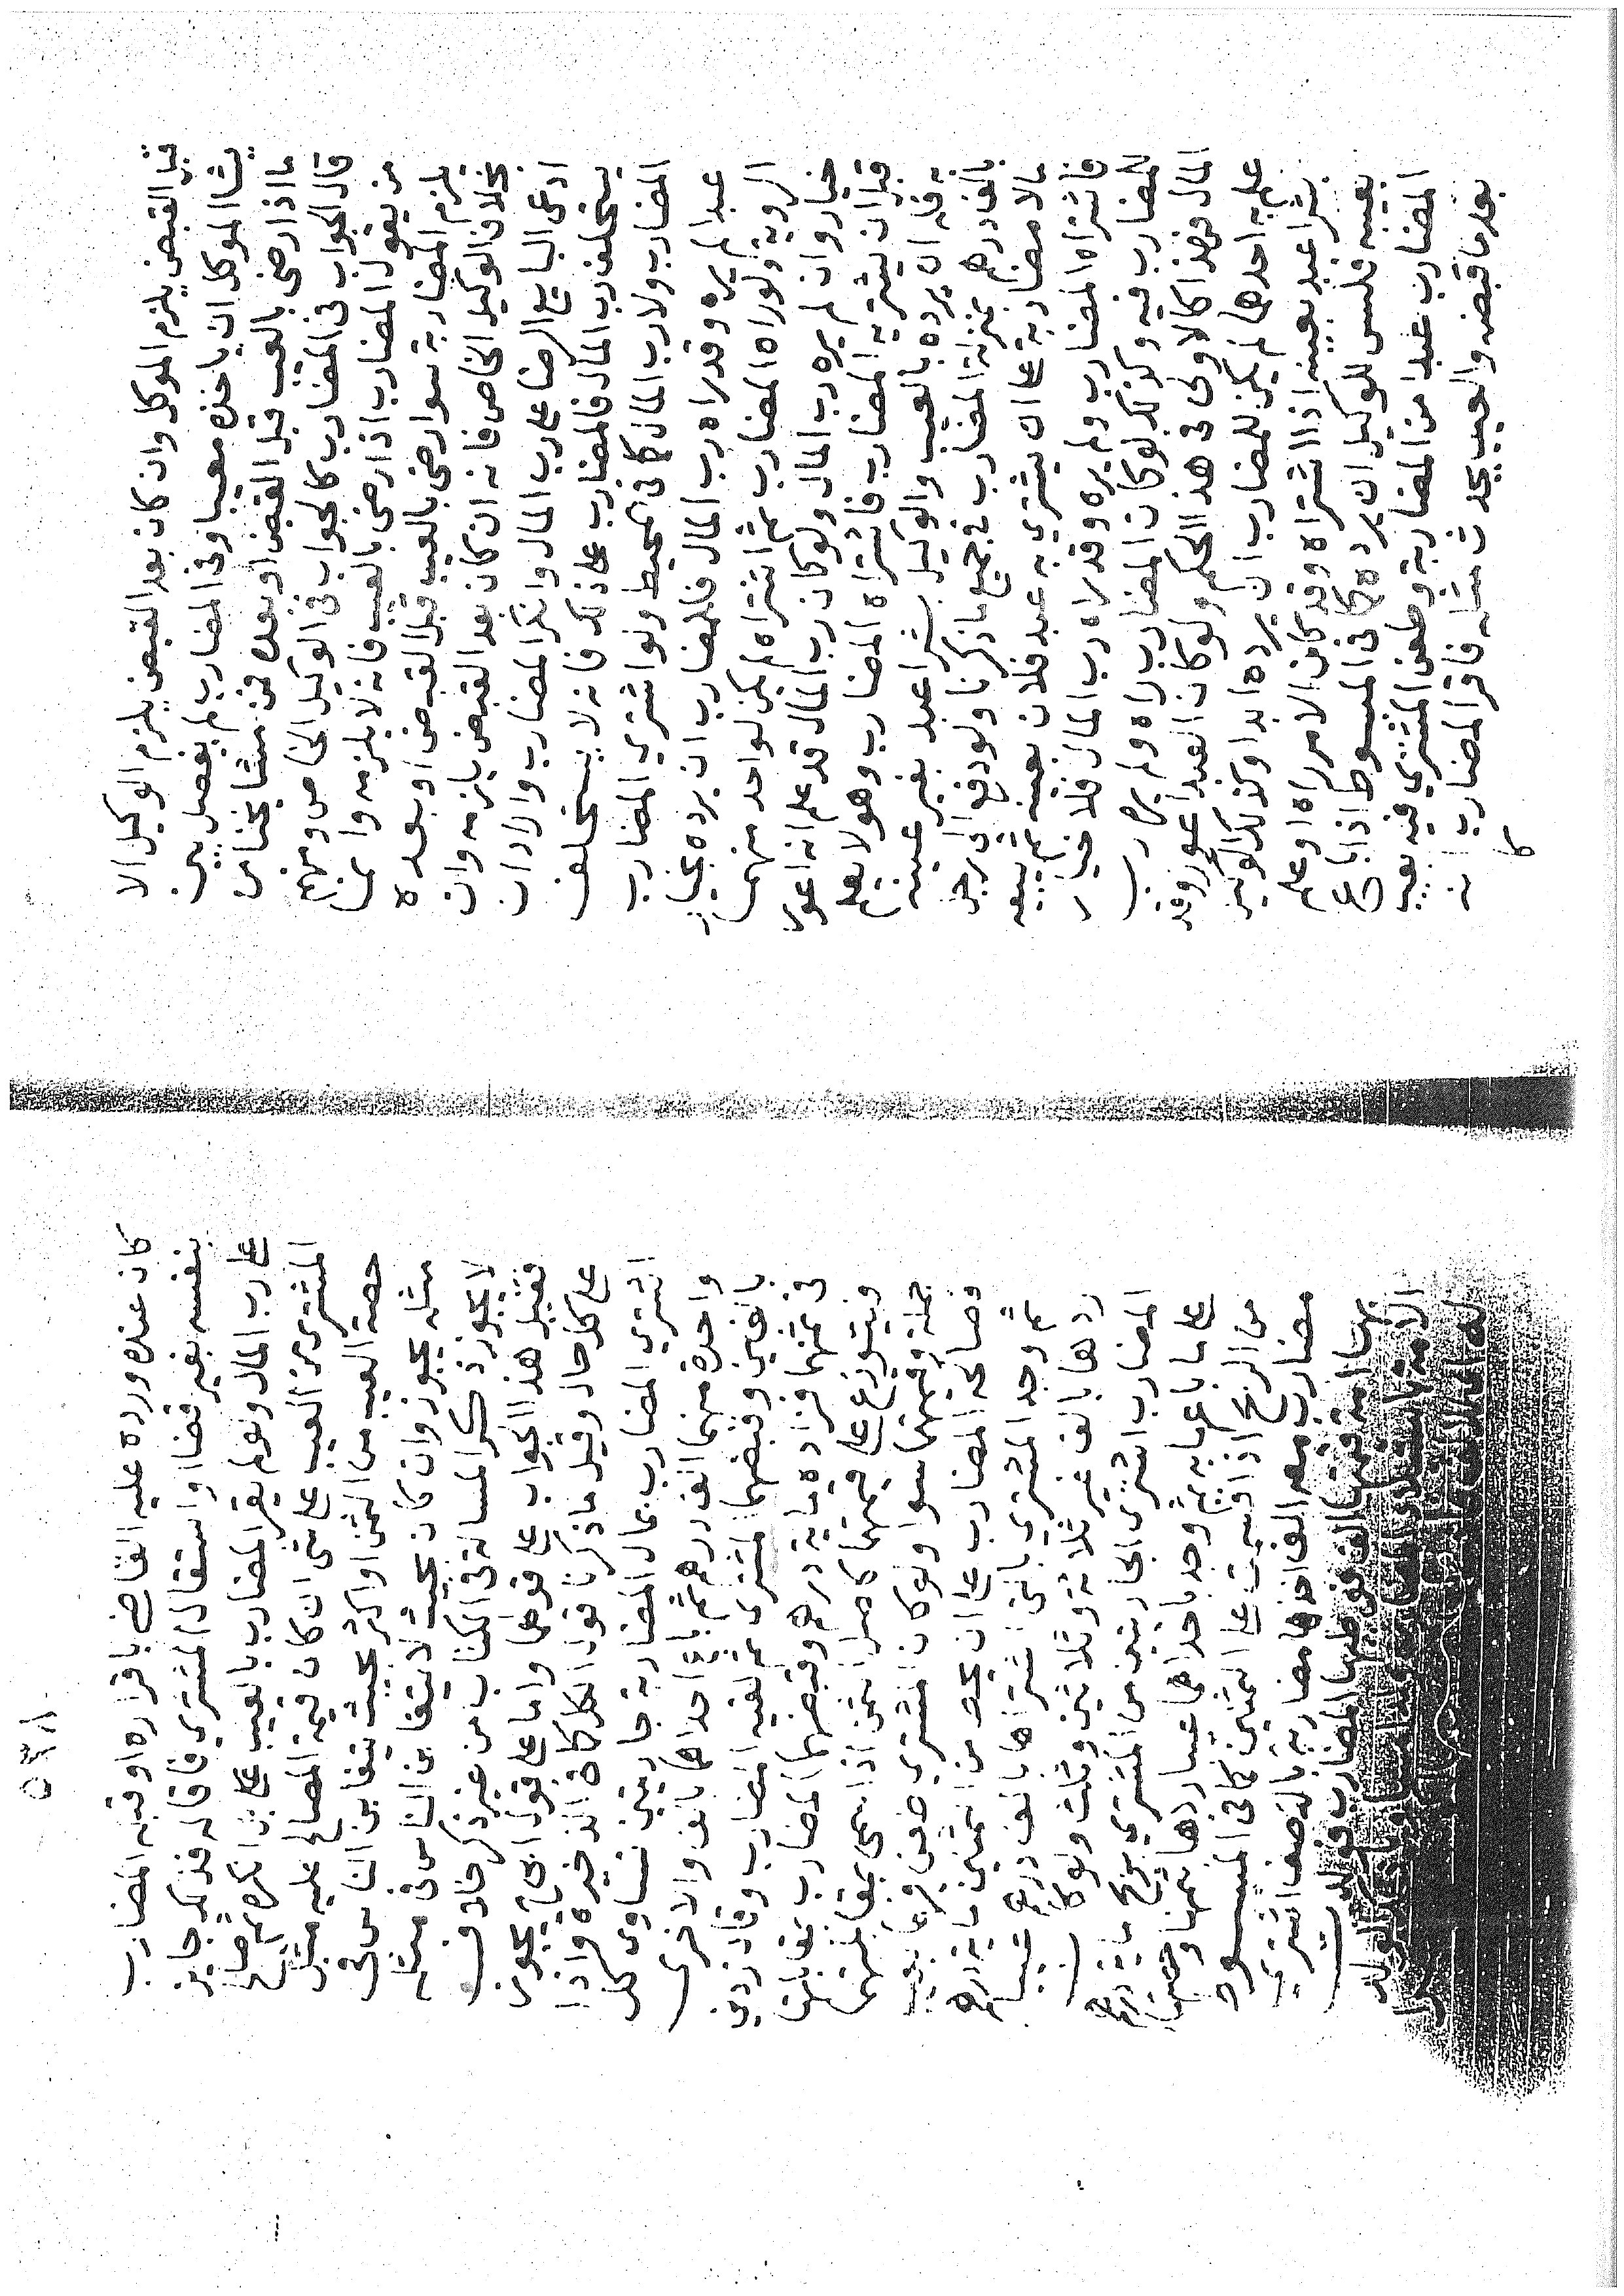 قبل القبض يلزم الموكل وان كان بعد القبض يلزم الوكيل الا
يشا الموكل ان ياخذه معيبا وفى المضارب لم يفصل بين
ما اذا رضى بالعيب قبل القبض او بعده فمن مشايخنا من
قال الجواب فى المضارب كالجواب فى الوكيل الخاص ومنهم
من يقول المضارب اذا رضى بالعيب فانه لا يلزمه وانما
يلزم المضاربة سوا رضى بالعيب قبل القبض او بعده
بخلاف الوكيل الخاص فانه ان كان بعد القبض يلزمه وان
ادعى البايع الرضا على رب المال وانكر المضارب واراد ان
يستحلف رب المال فالمضارب على ذلك فانه لا يستحلف
المضارب ولا رب المال كما فى المحيط ولو اشترى المضارب
عبدا لم يره وقد راه رب المال فللمضارب ان يرده بخيار
الروية ولو راه المضارب ثم اشتراه لم يكن لواحد منهما
خيار وان لم يره رب المال ولو كان رب المال قد علم انه اعور
قبل ان يشتريه المضارب فاشتراه المضارب وهو لا يعلم
به فله ان يرده بالعيب والوكيل بشرا عبد بغير عينه
بالف درهم بمنزلة المضارب فى جميع ما ذكرنا ولو دفع الى رجل
مالا مضاربة على ان يشترى به عبد فلان بعينه ثم يبيعه
فاشتراه المضارب ولم يره وقد راه رب المال فلا خيار
للمضارب فيه وكذلك لو كان المضارب راه ولم يره رب
المال فهذا كالاولى فى هذا الحكم ولو كان العبد اعور وقد
علم به احدهما لم يكن للمضارب ان يرده ابدا وكذلك الوكيل
بشرا عبد بعينه اذا اشتراه وقد كان الامر راه او علم
بعيبه فليس للوكيل ان يرده كما فى المبسوط اذا باع
المضارب عبدا من المضاربة وطعن المشترى فيه بعيب
بعد ما قبضه والعيب يحدث مثله فاقر المضارب انه
كا
٥٣١
كان عنده ورده عليه القاضى باقراره او قبله المضارب
بنفسه بغير قضا او استقال المشترى فاقاله فذلك جايز
على رب المال ولو لم يقر المضارب بالعيب بل انكره ثم صالح
المشترى من العيب على شى ان كان قيمة المصالح عليه مثل
حصة العيب من الثمن او اكثر بحيث يتغابن الناس فى
مثله يجوز وان كان بحيث لا يتغابن الناس فى مثله
لا يجوز ذكر المسالة فى الكتاب من غير ذكر خلاف
فقيل هذا الجواب على قولهما واما على قول ابى ح يجوز
على كل حال وقيل ما ذكرنا قول الكل كما فى الذخيرة واذا
اشترى المضارب بمال المضاربة جاريتين تساوى كل
واحدة منهما الف درهم ثم باع احداهما بالف والاخرى
بالفين وقبضهما المشترى ثم لقيه المضارب وقال زدنى
فى ثمنهما فزاده ماية درهم وقبضها المضارب
ويتوزع على قيمتهما كاصل الثمن اذا سمى بمقابلتهما
جملة وقيمتهما سوا ولو كان المشترى طعن فيهما بعيب
فصالحه المضارب على ان يحط من الثمنين ماية درهم
ثم وجد المشترى بالتى اشتراها بالف درهم عيبا
ردها بالف غير ثلاثة وثلاثين وثلث ولو كان
المضارب اشترى الجاريتين من المشترى بربح ماية درهم
على ما باعها به ثم وجد باحداهما عيبا ردها بثمنها وحصتها
من الربح اذا قسمت على الثمنين كما فى المبسوط
مضارب معه الف اخذها مضاربة بالنصف اشترى
بها امة قيمتها الف فوطيها المضارب فولدت